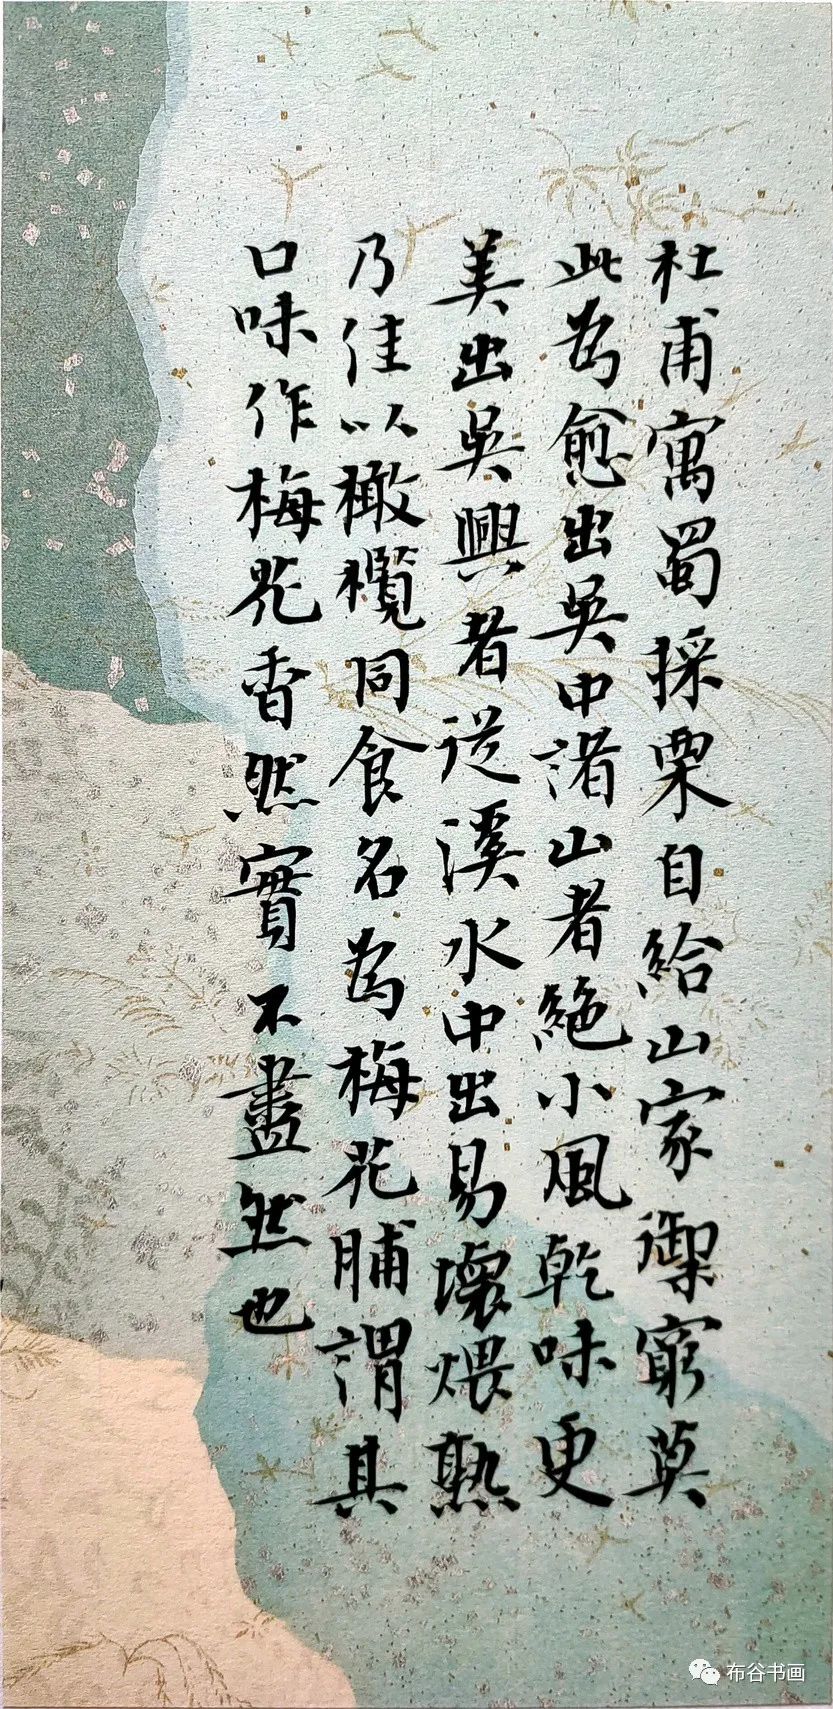 杜甫寓蜀採栗自給山家禦窮莫
此為愈出吳中諸山者絶小風乾味更
美出吳興者從溪水中出易壞煨熟
乃佳以橄欖同食名為梅花脯謂其
口味作梅花香然實不盡然也
布谷书画